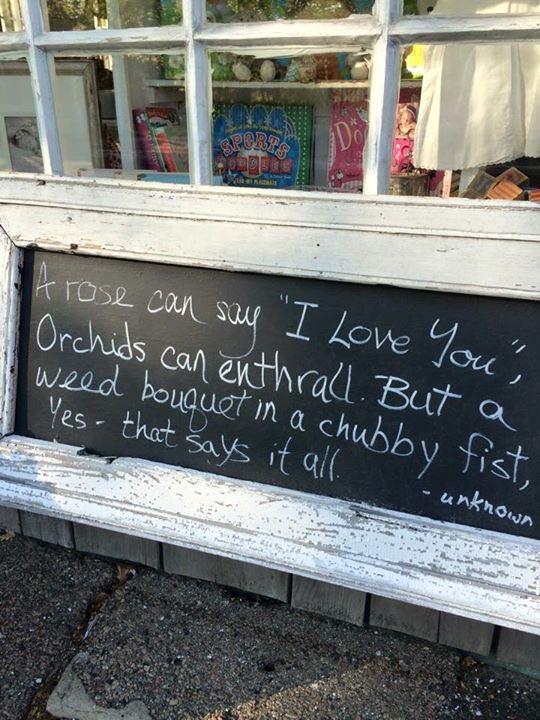 SPORTS
Do
A rose can say "I Love You",
Orchids can enthrall. But a
weed bouquet in a chubby fist,
Yes - that says it all.
- unknown